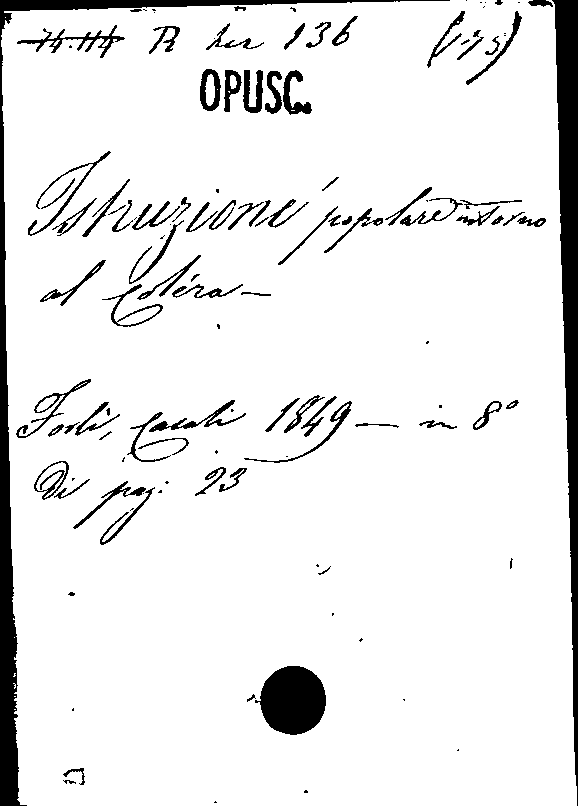 74.114 R 136 (175)
OPUSC.
Istruzione popolare intorno
al coléra —
Forlì, Casali 1849 — in 8°
Di pag: 23